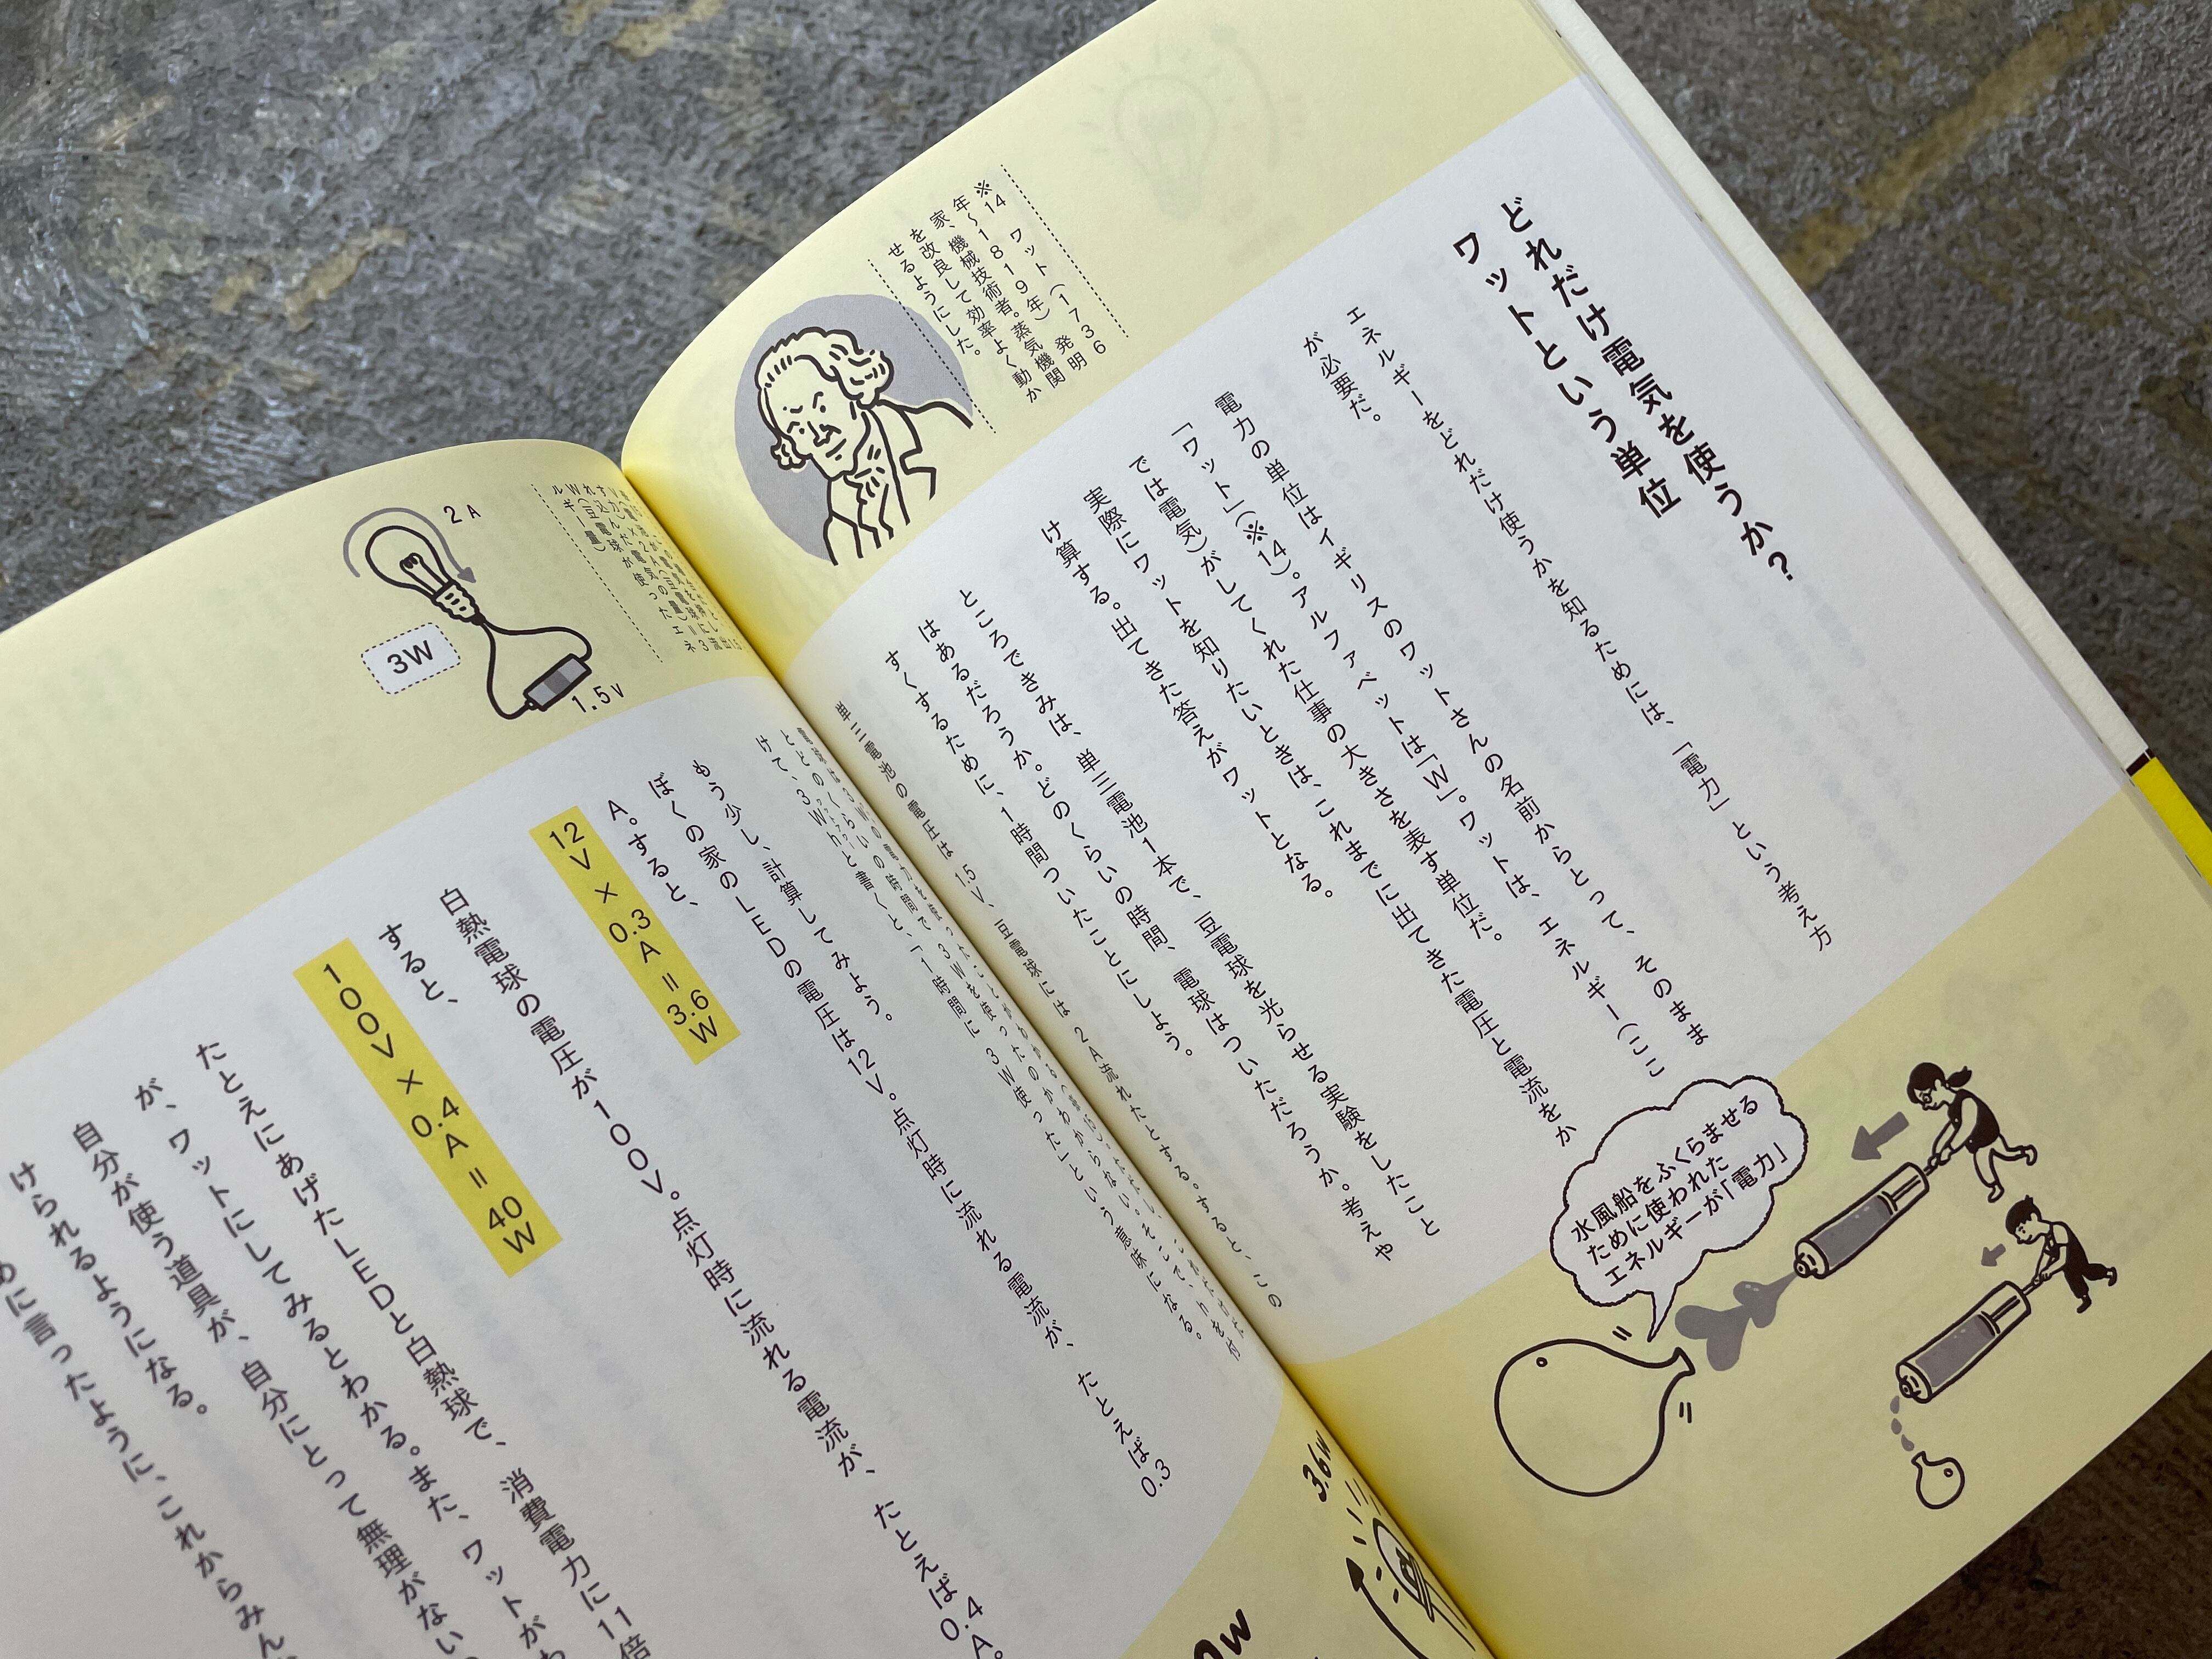 どれだけ電気を使うか?
ワットという単位
エネルギーをどれだけ使うかを知るためには、「電力」という考え方
が必要だ。
電力の単位はイギリスのワットさんの名前からとって、そのまま
「ワット」(※14)。アルファベットは「W」。ワットは、エネルギー(ここ
では電気)がしてくれた仕事の大きさを表す単位だ。
実際にワットを知りたいときは、これまでに出てきた電圧と電流をか
け算する。出てきた答えがワットとなる。
ところできみは、単三電池1本で、豆電球を光らせる実験をしたこと
はあるだろうか。どのくらいの時間、電球はついただろうか。考えや
すくするために、1時間ついたことにしよう。
単三電池の電圧は1.5V、豆電球には2A流れたとする。すると、この
※14 ワット(1736
年~1819年) 発明
家、機械技術者。蒸気機関
を改良して効率よく動か
せるようにした。
水風船をふくらませる
ために使われた
エネルギーが「電力」
けて、3Whと書くと、「1時間に3W使った」という意味になる。
もう少し、計算してみよう。
ぼくの家のLEDの電圧は12V。点灯時に流れる電流が、たとえば0.3
A。すると、
12V×0.3A=3.6W
白熱電球の電圧が100V。点灯時に流れる電流が、たとえば0.4A。
すると、
100V×0.4A=40W
たとえにあげたLEDと白熱球で、消費電力に11倍
が、ワットにしてみるとわかる。また、ワットがわ
自分が使う道具が、自分にとって無理がない
けられるようになる。
めに言ったように、これからみん
2A
3W
1.5V
3.6W